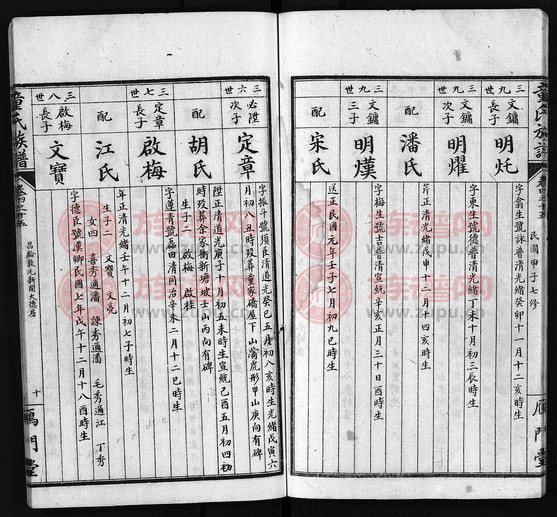 童氏族譜
民國甲子七修
雁門堂
三九世
文鏞長子
明灹
字翕生號詠普清光緒癸卯十一月十二亥時生
三九世
文鏞次子
明耀
字東生號德普清光緒丁未十月初三辰時生
配
潘氏
芹正清光緒戊申十二月十四亥時生
三九世
文鏞三子
明熯
字梅生號吉普清宣統辛亥正月三十日酉時生
配
宋氏
送正民國元年壬子七月初九巳時生
三六世
必陞次子
定章
字振斗號須良清道光癸巳五月初八亥時生光緒戊寅六
月初八丑時歿葬童家橋屋下山滃虎形甲山庚向有碑
配
胡氏
陞正清道光庚子十月初五未時生宣統己酉五月初四初
時歿葬余家衝新塘坡壬山丙向有碑
生子二 啟梅 啟桂
三七世
定章長子
啟梅
字蓮青號磊田清同治辛未二月十二巳時生
配
江氏
年正清光緒壬午十二月初七子時生
生子二 文寶 文亮
女四 喜秀適潘 謀秀適潘 毛秀適江 丁秀
三八世
啟梅長子
文寶
字德臣號漢卿民國七年戊午十二月十八酉時生
童氏族譜
昌齡敦元新聞大德居
十
雁門堂
族譜网
www.zupu.cn